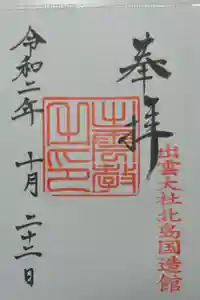 奉拝
出雲大社北島国造館
出雲教之印
令和二年 十月 二十二日